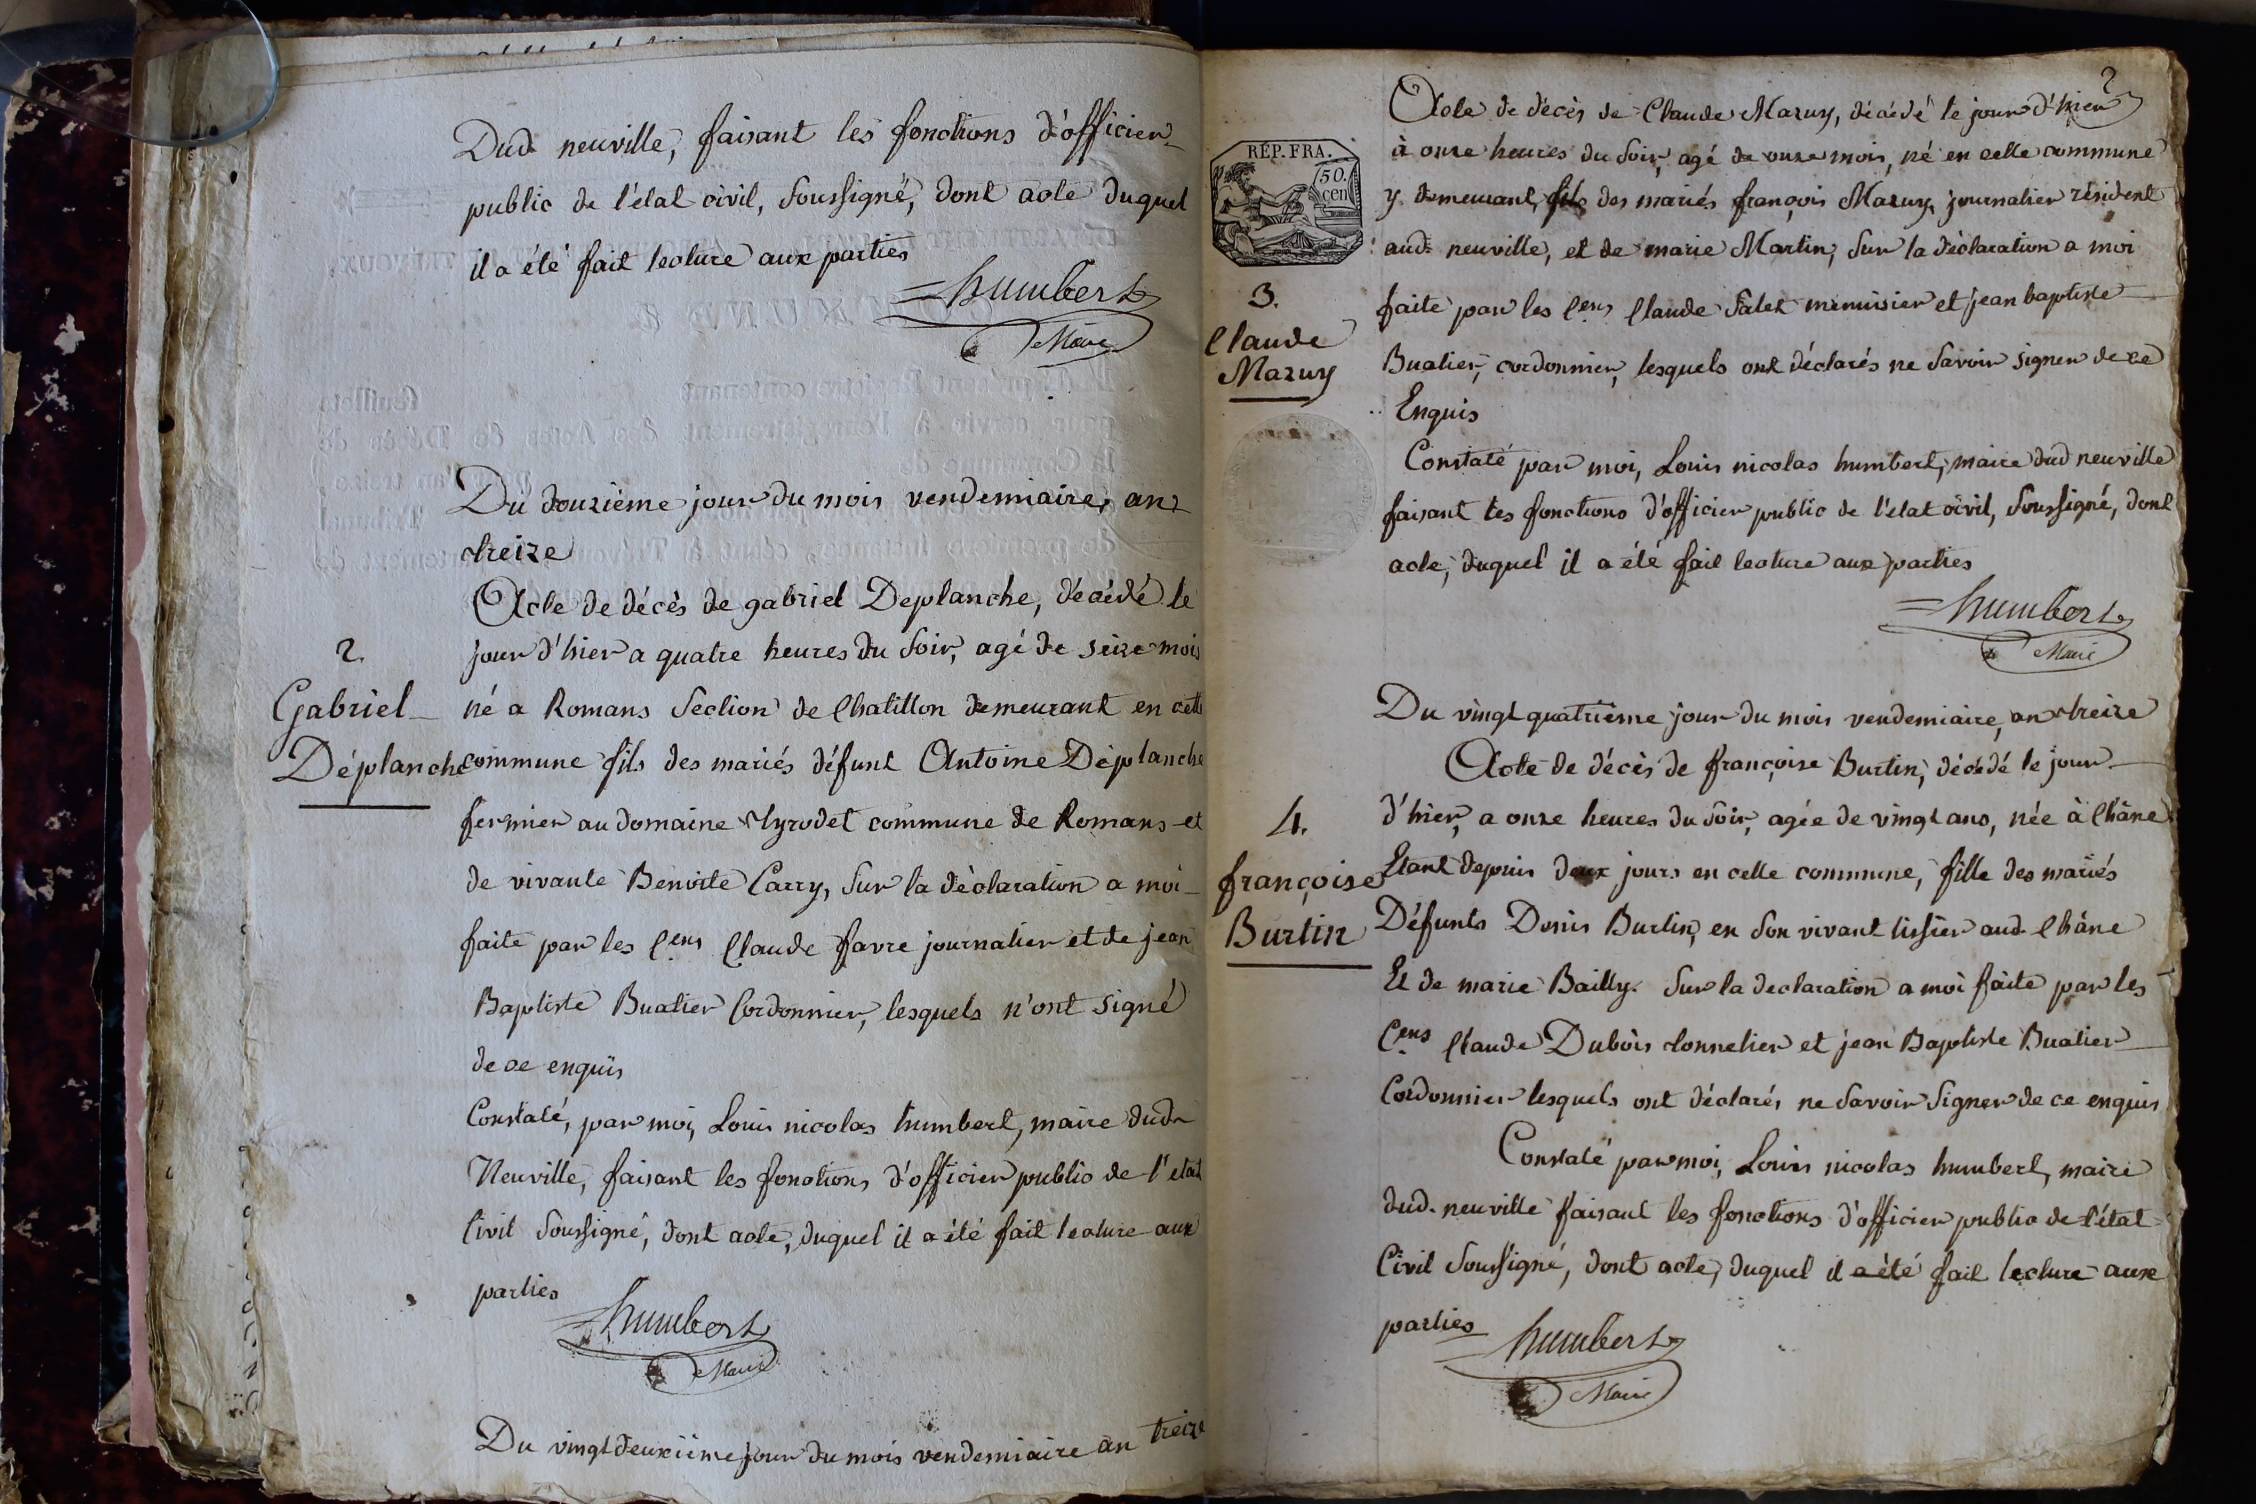 Dud. neuville, faisant les fonctions d'officier
public de l'état civil, soussigné, dont acte duquel
il a été fait lecture aux parties
humbert
Maire
Du douzième jour du mois vendemiaire, an
treize
2.
Gabriel
Déplanche
Acte de décès de gabriel Deplanche, décédé le
jour d'hier a quatre heures du soir, agé de seize mois
né a Romans section de Chatillon demeurant en cette
commune fils des mariés défunt Antoine Déplanche
fermier au domaine Tyrodet commune de Romans et
de vivante Benoite Carry, sur la déclaration a moi
faite par les Cens Claude favre journalier et de jean
Baptiste Buatier Cordonnier, lesquels n'ont signé
de ce enquis
Constaté, par moi, Louis nicolas humbert, maire dud.
Neuville, faisant les fonctions d'officier public de l'etat
Civil soussigné, dont acte, duquel il a été fait lecture aux
parties
humbert
Maire
Du vingt deuxième jour du mois vendemiaire an treize
2
RÉP. FRA.
50.
cen
3.
Claude
Mazuy
Acte de décès de Claude Mazuy, décédé le jour d'hier
à onze heures du soir, agé de onze mois, né en cette commune
y demeurant, fils des mariés françois Mazuy, journalier résident
aud. neuville, et de marie Martin, sur la déclaration a moi
faite par les Cens Claude Falet menuisier et jean baptiste
Buatier, cordonnier, lesquels ont déclarés ne savoir signer de ce
Enquis
Constaté par moi, Louis nicolas humbert, maire dud neuville
faisant les fonctions d'officier public de l'etat civil, soussigné, dont
acte, duquel il a été fait lecture aux parties
humbert
Maire
Du vingt quatrième jour du mois vendemiaire, an treize
4.
françoise
Burtin
Acte de décès de françoise Burtin, décédé le jour
d'hier, a onze heures du soir, agée de vingt ans, née à Châne
Etant depuis deux jours en cette commune, fille des mariés
Défunts Denis Burtin, en son vivant tissier aud. Châne
Et de marie Bailly. sur la declaration a moi faite par les
Cens Claude Dubois tonnelier et jean Baptiste Buatier
Cordonnier lesquels ont déclarés ne savoir signer de ce enquis
Constaté par moi, Louis nicolas humbert, maire
dud. neuville faisant les fonctions d'officier public de l'état
Civil soussigné, dont acte, duquel il a été fait lecture aux
parties
humbert
Maire